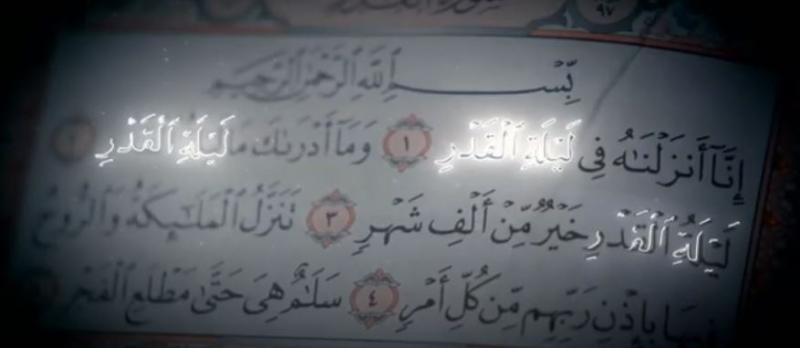 سورة القدر ٩٧
بِّسْمِ ٱللَّهِ ٱلرَّحْمَٰنِ ٱلرَّحِيمِ
إِنَّآ أَنزَلْنَٰهُ فِى لَيْلَةِ ٱلْقَدْرِ ١ وَمَآ أَدْرَىٰكَ مَا لَيْلَةُ ٱلْقَدْرِ ٢
لَيْلَةُ ٱلْقَدْرِ خَيْرٌ مِّنْ أَلْفِ شَهْرٍ ٣ تَنَزَّلُ ٱلْمَلَٰٓئِكَةُ وَٱلرُّوحُ
فِيهَا بِإِذْنِ رَبِّهِم مِّن كُلِّ أَمْرٍ ٤ سَلَٰمٌ هِىَ حَتَّىٰ مَطْلَعِ ٱلْفَجْرِ